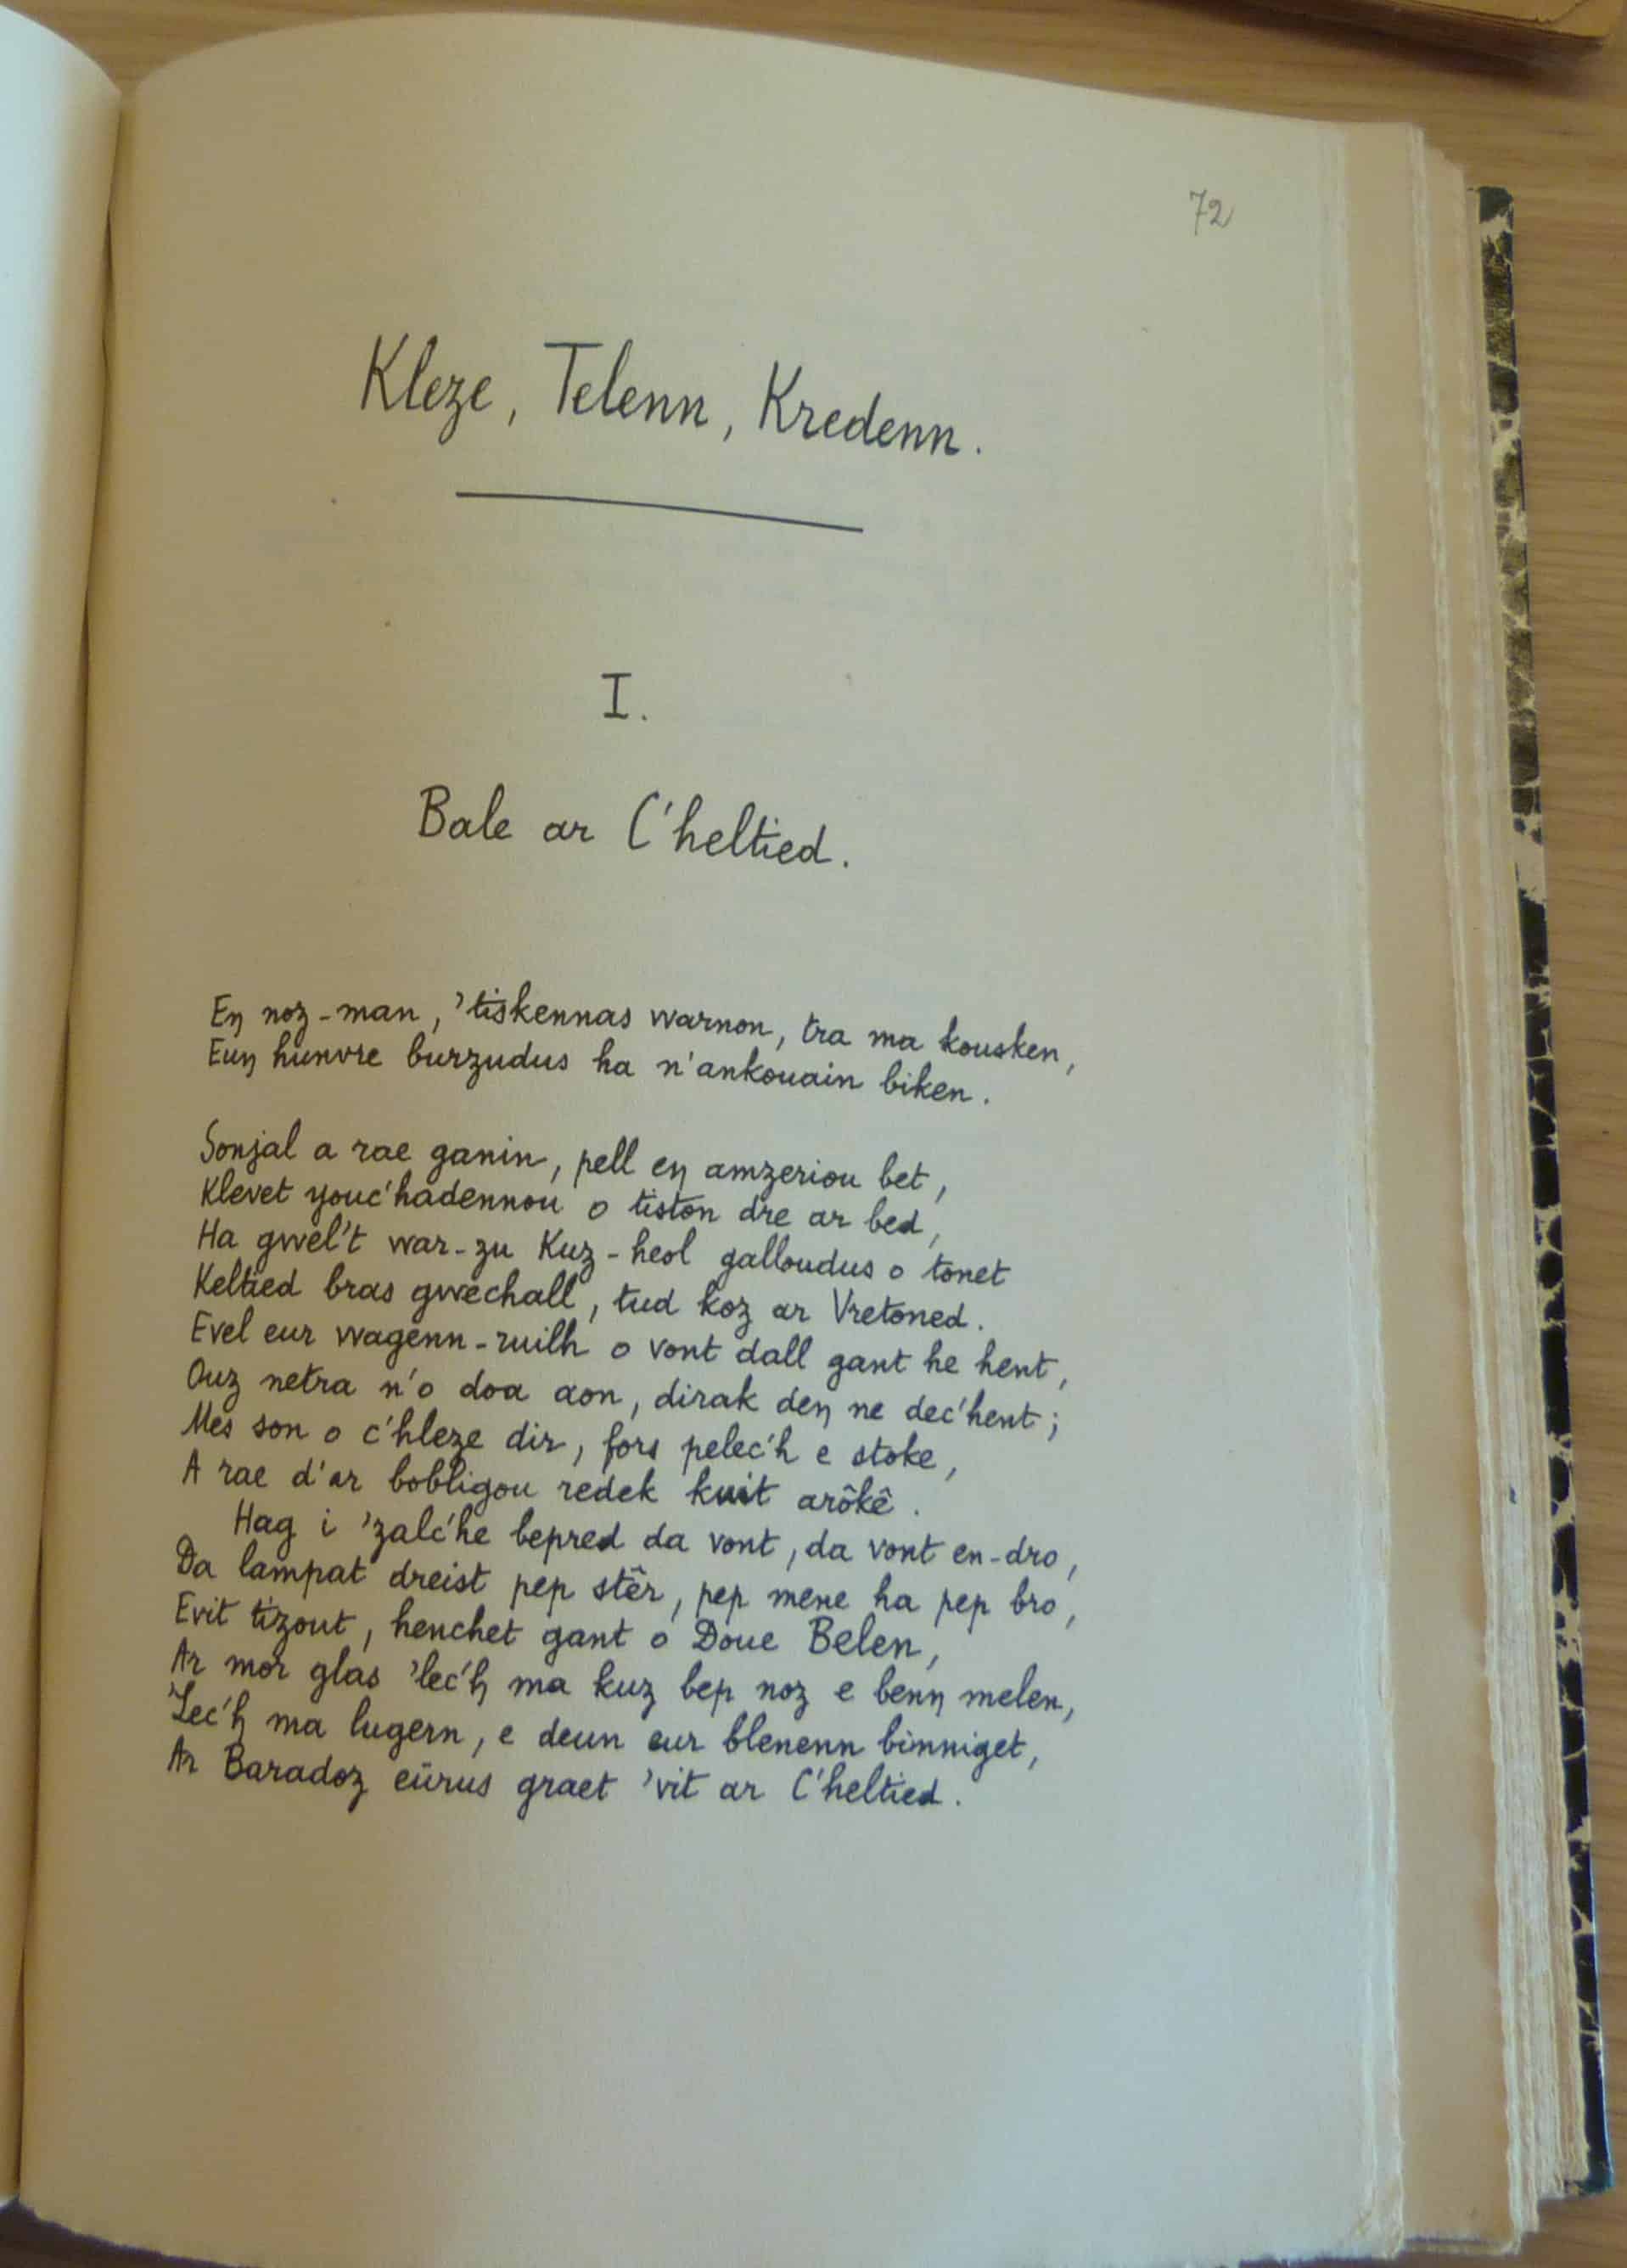 72
Kleze, Telenn, Kredenn.
I.
Bale ar C'heltied.
Eŋ noz-man, 'tiskennas warnon, tra ma kousken,
Euŋ hunvre burzudus ha n'ankouain biken.
Sonjal a rae ganin, pell eŋ amzeriou bet,
Klevet youc'hadennou o tiston dre ar bed,
Ha gwel't war-zu Kuz-heol galloudus o tonet
Keltied bras gwechall, tud koz ar Vretoned.
Evel eur wagenn-ruilh o vont dall gant he hent,
Ouz netra n'o doa aon, dirak deŋ ne dec'hent ;
Mes son o c'hleze dir, fors pelec'h e stoke,
A rae d'ar bobligou redek kuit arôkê.
Hag i 'zalc'he bepred da vont, da vont en-dro,
Da lampat dreist pep stêr, pep mene ha pep bro,
Evit tizout, henchet gant o Doue Belen,
Ar mor glas 'lec'ŋ ma kuz bep noz e benŋ melen,
'Lec'ŋ ma lugern, e deun eur blenenn binniget,
Ar Baradoz eürus graet 'vit ar C'heltied.